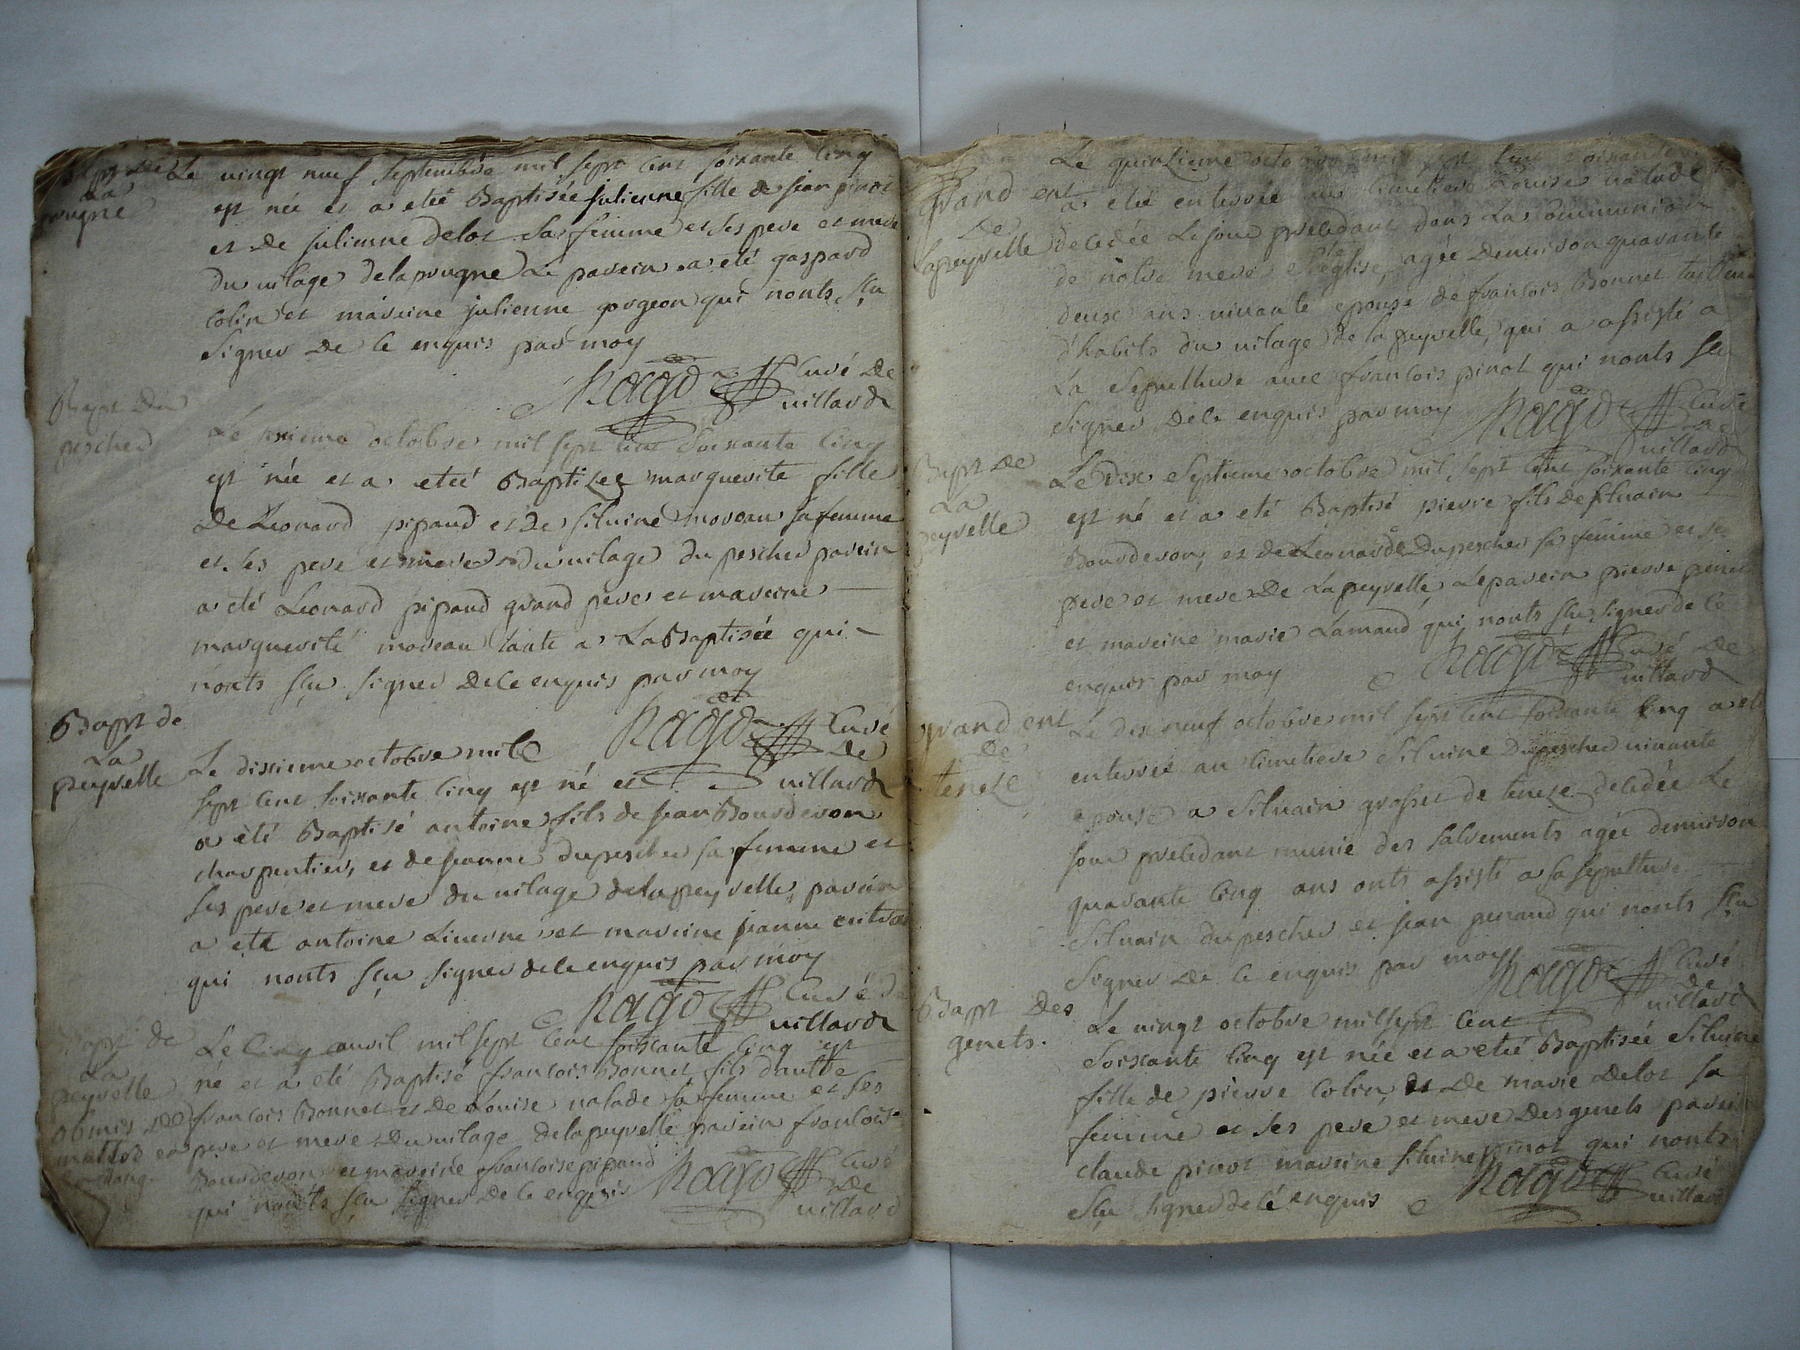 Bapt de
La
pougne
Le vingt neuf septembre mil sept cent soixante cinq
est née et a eté Baptisée julienne fille de jean pinot
et de julienne delot sa femme et ses pere et mere
du vilage delapougne Le parein a eté gaspard
Colin et mareine julienne gorgeon qui nonts sçu
signer de ce enquis par moy
Nago Curé de
villard
Bapt du
pescher
Le sixieme octobre mil sept cent soixante cinq
est née et a eteé Baptizee marguerite fille
De Leonard pipaud et De silvine moreau sa femme
et ses pere et mere du vilage du pescher parein
a été Leonard pipaud grand pere et mareine
marguerite moreau tante a LaBaptisée qui
nonts sçu signer De ce enquis par moy
Nago Curé
de
villard
Bapt de
La
peyrelle
Le dixieme octobre mil
sept cent soixante cinq est né et
a été Baptisé antoine fils de jean Bourderon
charpentier, et de jeanne dupescher sa femme et
ses pere et mere du vilage delapeyrelle, parein
a eté antoine Liverne et mareine jeanne
qui nonts sçu signer de ce enquis par moy
Nago Curé de
villard
Bapt de
La
peyrelle
obmis
Le Cinq avril mil sept cent soixante cinq est
né et a eté Baptisé francois Bonnet fils d'autre
francois Bonnet et De Louise nalade sa femme et ses
pere et mere du vilage delapeyrelle parein francois
Bourderon et mareine francoise pipaud
qui nonts sçu signer De ce enquis
Nago Curé
De
villard
grand ent
De
Lapeyrelle
Le quinzieme octobre mil sept cent soixante
a eté enterrée au cimetiere Louise nalade
decedée Le jour precedant dans La Communion
de notre mere ste eglise, agée denviron quarante
deux ans vivante epouse de francois Bonnet tailleur
d'habits du vilage de la peyrelle, qui a assisté a
La sepulture avec francois pinot qui nonts sçu
signer De ce enquis par moy
Nago Curé
De
villard
Bapt de
La
peyrelle
Le dix septieme octobre mil sept cent soixante cinq
est né et a eté Baptisé pierre fils de silvain
Bourderon, et de Leonarde Dupescher sa femme et ses
pere et mere De Lapeyrelle Le parein pierre
et mareine marie Lamaud qui nonts sçu signer de ce
enquis par moy
Nago Curé De
villard
grand ent
de
teneze
Le dix neuf octobre mil sept cent soixante cinq a eté
enterrée au cimetiere silvine Dupescher vivante
epouse a silvain grosset de teneze decedée Le
jour precedant munie des sacrements agée denviron
quarante cinq ans onts assisté a sa sepulture
silvain dupescher et jean penaud qui nonts sçu
signer De ce enquis par moy
Nago Curé
de
villard
Bapt des
genets.
Le vingt octobre mil sept cent
soixante cinq est née et a eteé Baptisée silvine
fille de pierre Colin, et De marie Delot sa
femme et ses pere et mere Desgenets parein
claude pinot mareine silvine pinot qui nonts
sçu signer de ce enquis
Nago Curé
villard